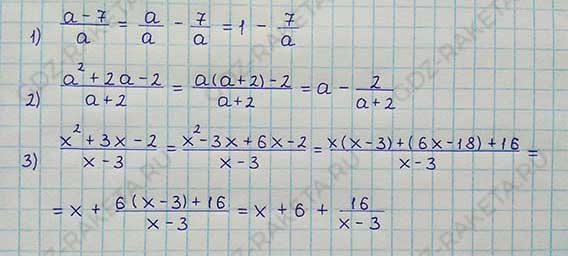 1) (a-7)/a = a/a - 7/a = 1 - 7/a
2) (a²+2a-2)/(a+2) = (a(a+2)-2)/(a+2) = a - 2/(a+2)
3) (x²+3x-2)/(x-3) = (x²-3x+6x-2)/(x-3) = (x(x-3)+(6x-18)+16)/(x-3) =
= x + (6(x-3)+16)/(x-3) = x + 6 + 16/(x-3)
GDZ-RAKETA.RU